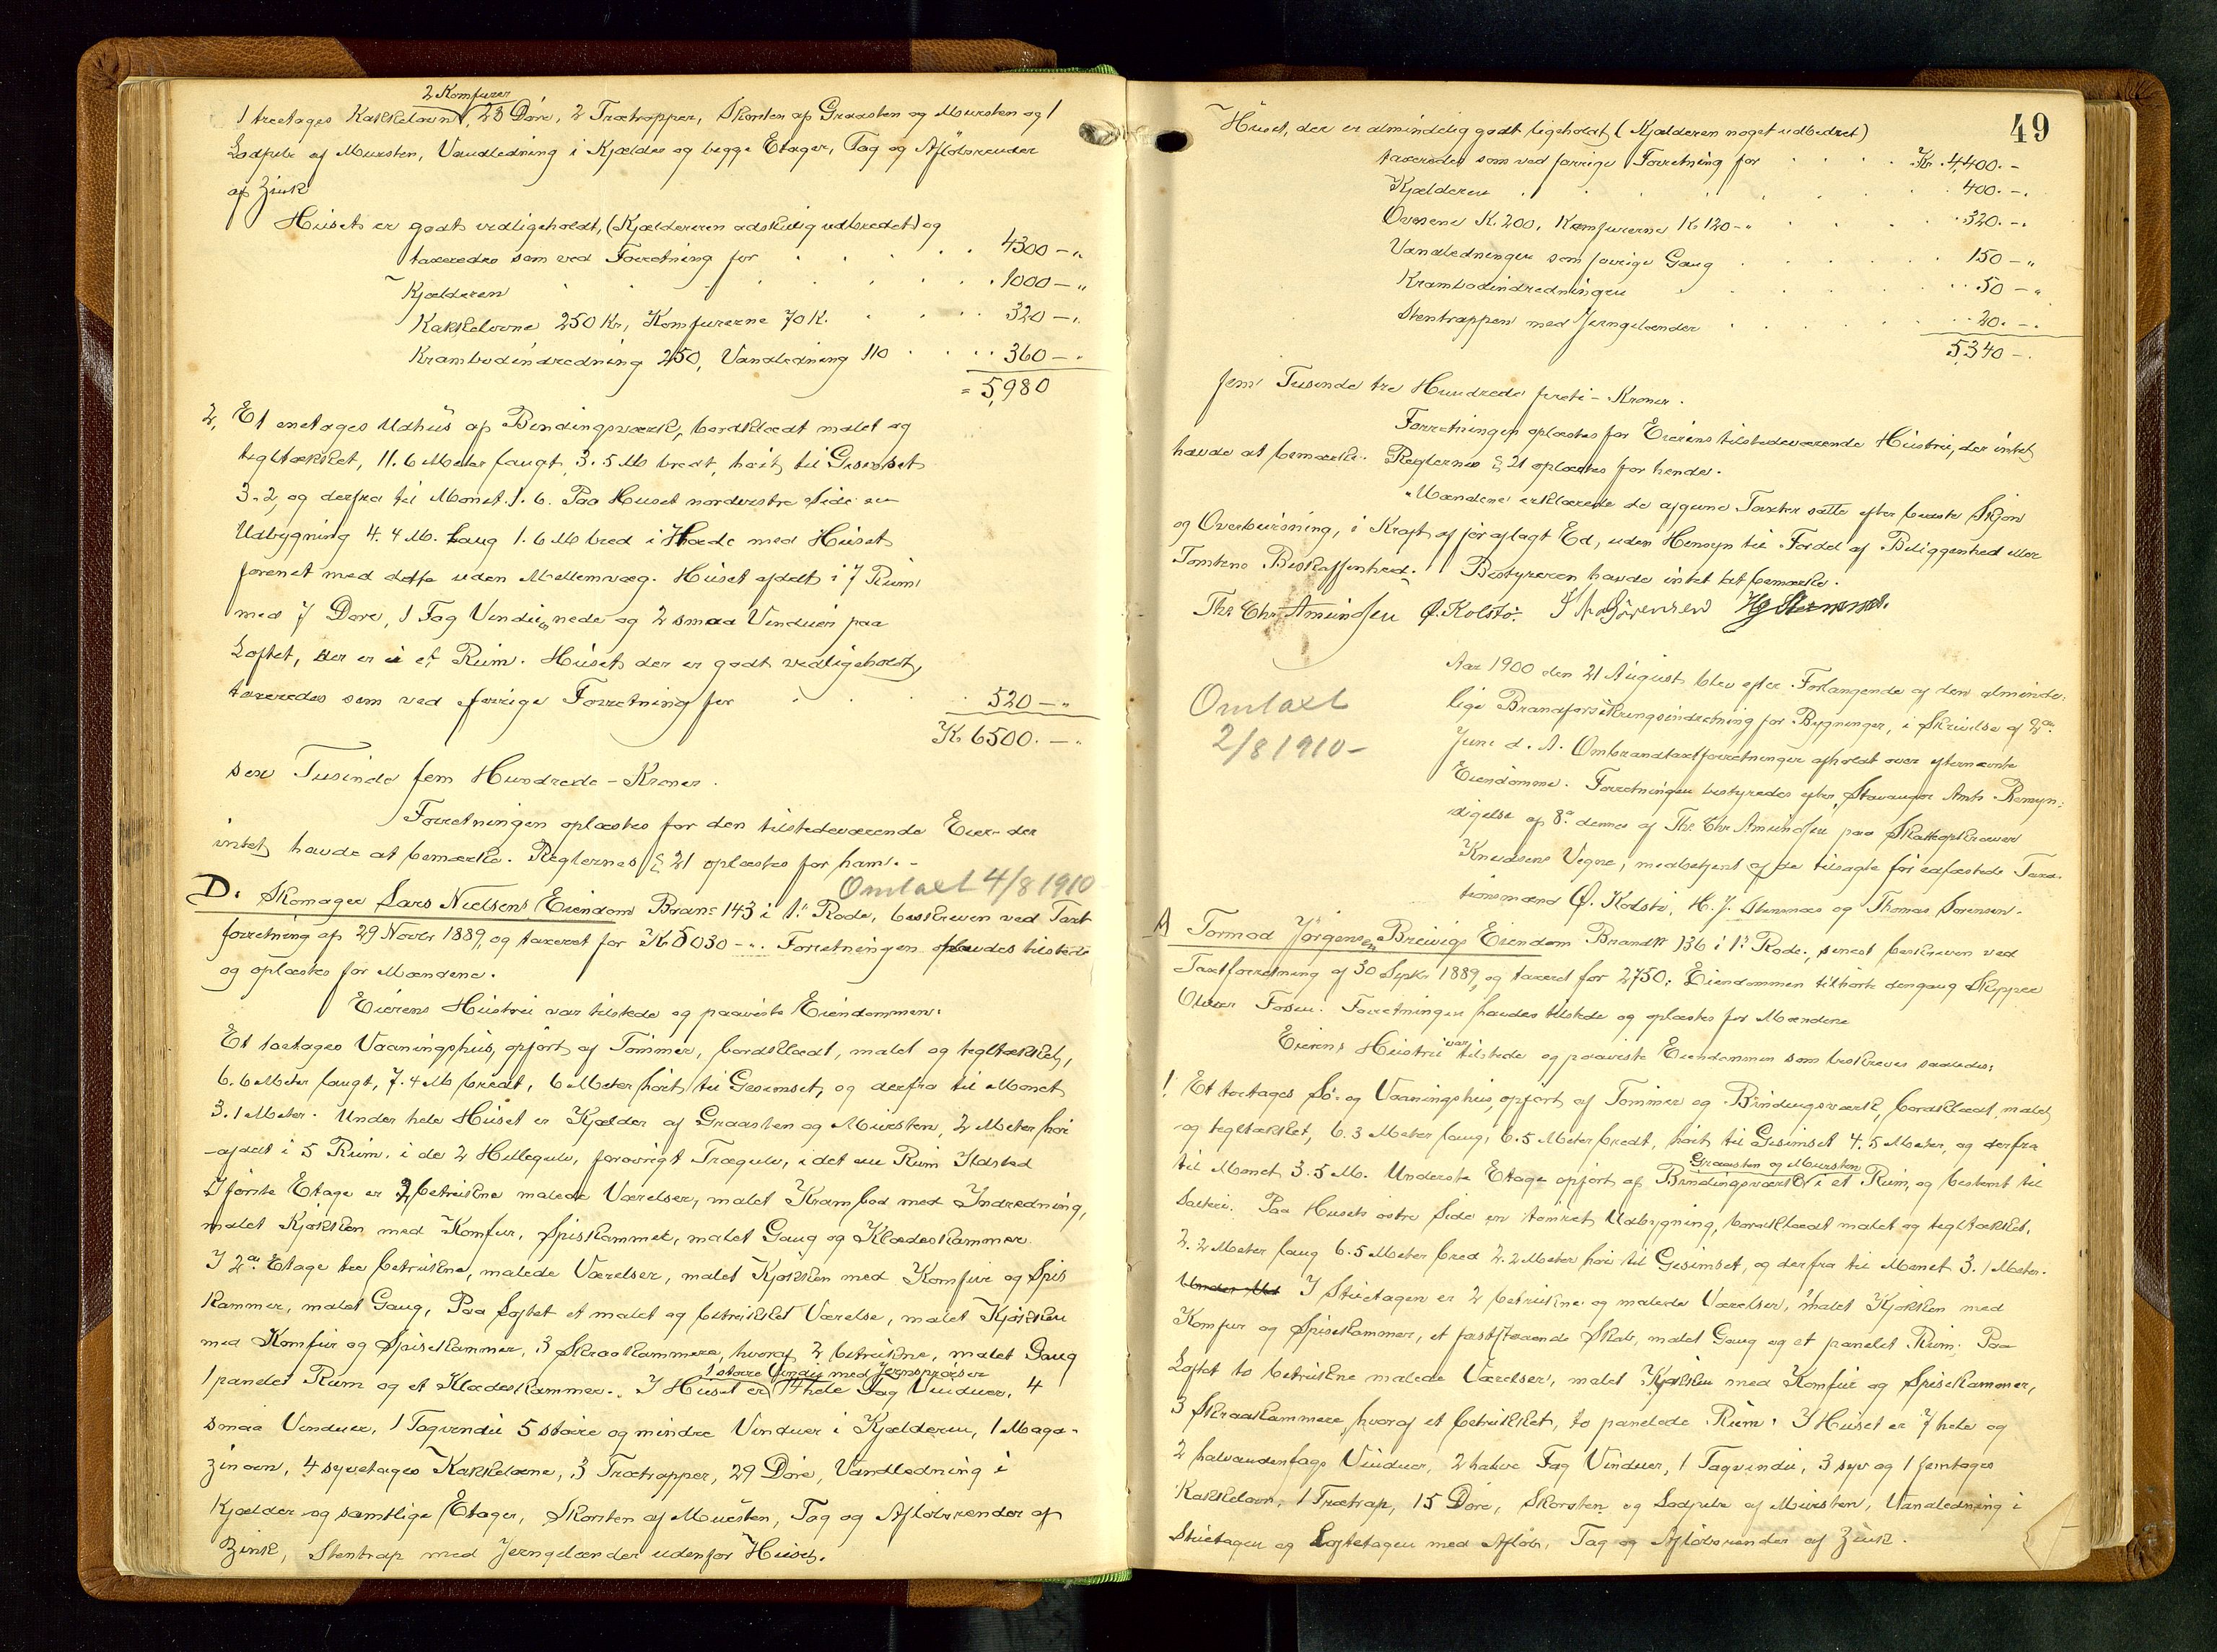 2 Komfurer
1 treetages Kakkelovn, 23 Døre, 2 Trætrapper, Skorsten af Graasten og Mursten og 1
Lodpibe af Mursten, Vandledning i Kjælder og begge Etager, Tag og Afløbsrender
af Zink
Huset er godt vedligeholdt, (Kjælderen adskillig udbedret) og
taxeredes som ved Forretning for 4300 - "
Kjælderen 1000 - "
Kakkelovne 250 Kr, Komfurerne 70 K. 320 - "
Krambodindredning 250, Vandledning 110 360 - "
= 5,980
2, Et enetages Udhus af Bindingsværk, bordklædt malet og
tegltækket, 11.6 Meter langt, 3.5 M bredt, høit til Gesimset
3.2, og derfra til Mønet 1.6. Paa Huset nordvestre Side en
Udbygning 4.4 M. Lang 1.6 M bred i Høide med Huset
forenet med dette uden Mellemvæg. Huset afdelt i 7 Rum
med 7 Døre, 1 Fag Vinduer nede og 2 smaa Vinduer paa
Loftet, der er i et Rum. Huset der er godt vedligeholdt,
taxeredes som ved forrige Forretning for 520 - "
K. 6500. - "
sex Tusinde fem Hundrede - Kroner.
Forretningen oplæstes for den tilstedeværende Eier der
intet havde at bemærke. Reglernes § 21 oplæstes for ham. -
Omtaxt 4/8 1910
D. Skomager Lars Nielsens Eiendom Bran: 143 i 1ste Rode, beskreven ved Taxt
forretning af 29 Novbr 1889, og taxeret for K 5030 - ". Forretningen havdes tilstede
og oplæstes for Mændene.
Eierens Hustru var tilstede og paaviste Eiendommen:
Et toetages Vaaningshus, opført af Tømmer, bordklædt, malet og tegltækket,
6.6 Meter langt, 7.4 M bredt, 6 Meter høit til Gesimset, og derfra til Mønet
3.1 Meter. Under hele Huset er Kjælder af Graasten og Mursten, 2 Meter høi
afdelt i 5 Rum, i de 2 Hellegulv, forøvrigt Trægulv, i det ene Rum Ildsted
I første Etage er 2 betrukne malede Værelser, malet Krambod med Indredning,
malet Kjøkken med Komfur, Spiskammer, malet Gang og Klædeskammer
I 2den Etage tre betrukne, malede Værelser, malet Kjøkken med Komfur og Spis
kammer, malet Gang, Paa Loftet et malet og betrukket Værelse, malet Kjøkken
med Komfur og Spisekammer, 3 Skraakammere, hvoraf 2 betrukne, malet Gang
1 større Vindu med Jernsprosser
1 panelet Rum og et Klædeskammer. I Huset er 14 hele Fag Vinduer, 4
smaa Vinduer, 1 Tagvindu 5 større og mindre Vinduer i Kjælderen, 1 Maga-
zinovn, 4 syvetages Kakkelovne, 3 Trætrapper, 29 Døre, Vandledning i
Kjælder og samtlige Etager, Skorsten af Mursten, Tag og Afløbsrender af
Zink, Stentrap med Jerngelænder udenfor Huset.
49
Huset, der er almindelig godt ligeholdt (Kjælderen noget udbedret)
taxeredes som ved forrige Forretning for Kr. 4,400. -
Kjælderen 400. - .
Ovnene K. 200, Komfurerne K 120 - " 320. - .
Vandledningen som forrige Gang 150 - "
Krambodindredningen 50 - "
Stentrappen med Jerngelænder 20. - .
5,340 - .
fem Tusinde tre Hundrede førti - Kroner.
Forretningen oplæstes for Eierens tilstedeværende Hustru, der intet
havde at bemærke. Reglernes § 21 oplæstes for hende.
Mændene erklærede de afgivne Taxter satte efter bedste Skjøn
og Overbevisning, i Kraft af før aflagt Ed, uden Hensyn til Fordel af Beliggenhed eller
Tomtens Beskaffenhed. Bestyreren havde intet at bemærke.
Ths. Chr. Amundsen Ø. Kolstø. Th. Sørensen
Omtaxt
2/8 1910 -
Aar 1900 den 21 August blev efter Forlangende af den alminde-
lige Brandforsikringsindretning for Bygninger, i Skrivelse af 2den
Juni d. A. Ombrandtaxtforretninger afholdt over efternævnte
Eiendomme. Forretningen bestyredes efter Stavanger Amts Bemyn-
digelse af 8de dennes af Ths Chr Amundsen paa Skatteopkræver
Knudsens Vegne, medbetjent af de tilsagte før edfæstede Taxa-
tionsmænd Ø. Kolstø, H. J. Stennæs og Thomas Sørensen.
A Tormod Jørgensen Breivigs Eiendom Brand№ 136 i 1ste Rode, senest beskreven ved
Taxtforretning af 30 Septr 1889, og taxeret for 2750: Eiendommen tilhørte dengang Skipper
Oliver Fosen. Forretningen havdes tilstede og oplæstes for Mændene
Eierens Hustru var tilstede og paaviste Eiendommen som beskreves saaledes:
1. Et toetages Sø- og Vaaningshus, opført af Tømmer og Bindingsværk, bordklædt, malet
og tegltækket, 6.3 Meter lang, 6.5 Meter bredt, høit til Gesimset 4.5 Meter, og derfra
Graasten og Mursten
til Mønet 3.5 M. Underste Etage opført af Bindingsværk i et Rum, og bestemt til
Salteri. Paa Husets østre Side en tømret Udbygning, bordklædt malet og tegltækket,
2.2 Meter lang 6.5 Meter bred 2.2 Meter høi til Gesimset, og derfra til Mønet 3.1 Meter.
I Stuetagen er 2 betrukne og malede Værelser, malet Kjøkken med
Komfur og Spisekammer, et fastståaende Skab, malet Gang og et panelet Rum. Paa
Loftet to betrukne malede Værelser, malet Kjøkken med Komfur og Spisekammer,
3 Skraakammere hvoraf et betrukket, to panelede Rum. I Huset er 7 hele og
2 halvandenfags Vinduer, 2 halve Fag Vinduer, 1 Tagvindu, 3 syv og 1 femtages
Kakkelovn, 1 Trætrap, 15 Døre, Skorsten og Lodpibe af Mursten, Vandledning i
Stuetagen og Loftetagen med Afløb, Tag og Afløbsrender af Zink.